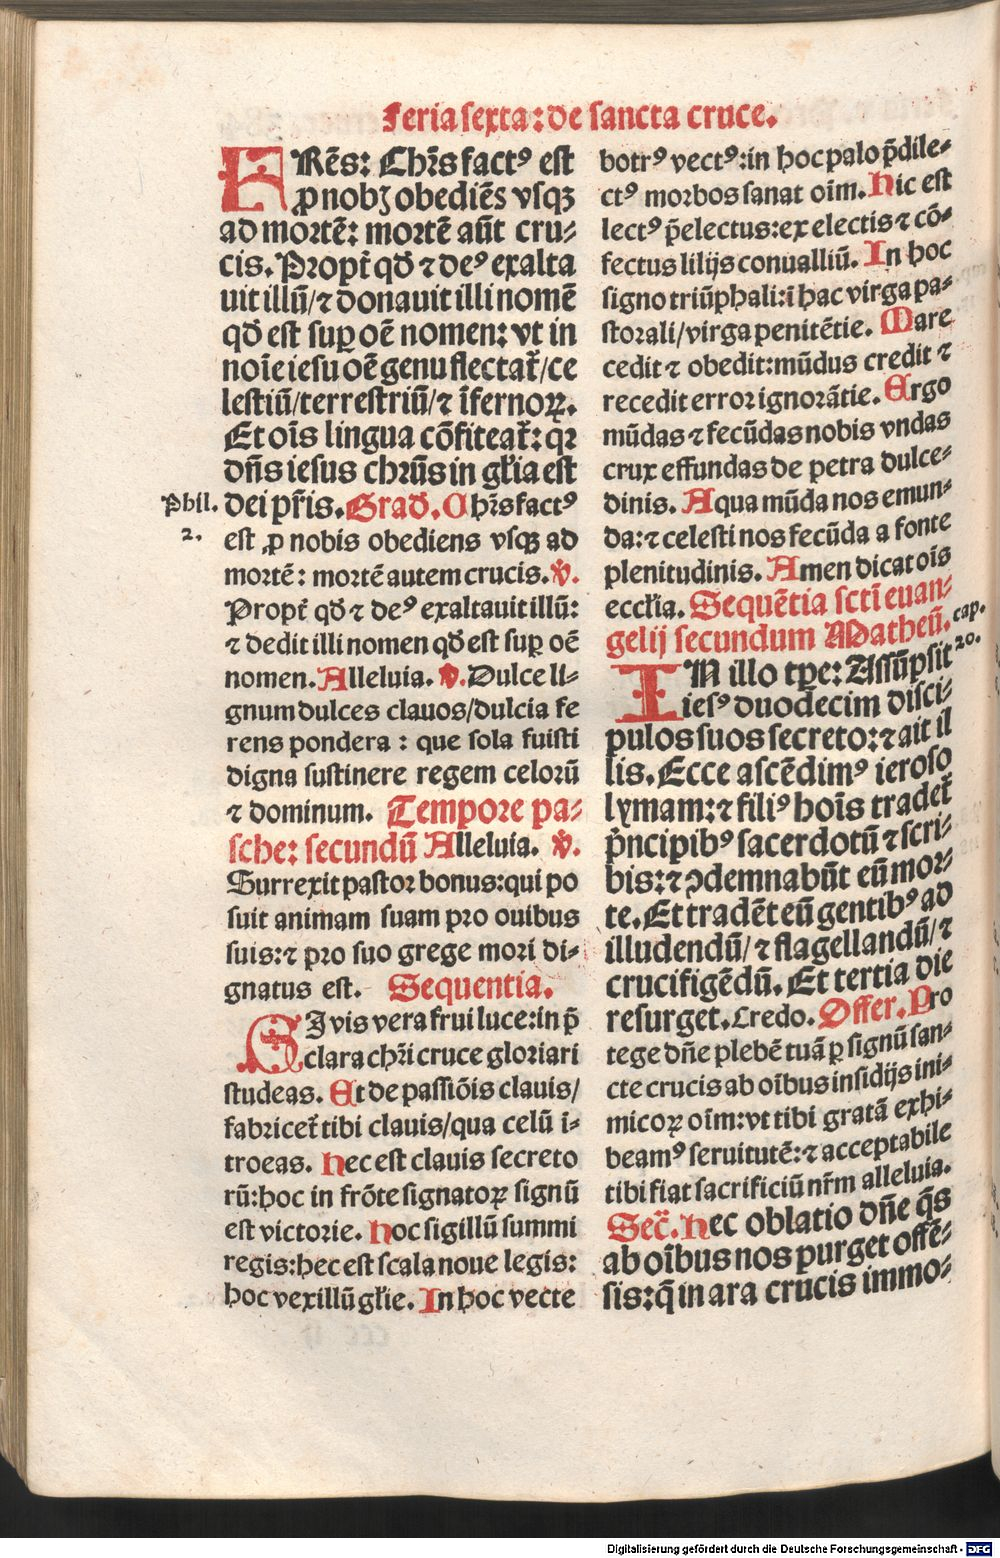 Feria sexta: de sancta cruce.
FRēs: Chr̄s fact⁹ est
ꝓ nobꝫ obediēs vsqꝫ
ad mortē: mortē aūt cru⸗
cis. Propt̄ qđ ⁊ de⁹ exalta
uit illū/ ⁊ donauit illi nomē
qđ est suꝑ oē nomen: vt in
noīe iesu oē genu flectat̄/ ce
lestiū/ terrestriū/ ⁊ īfernoꝝ.
Et oīs lingua cōfiteat̄: qꝛ
dn̄s iesus chrūs in gl̄ia est
Phil. dei pr̄is. Grad. Chr̄s fact⁹
2. est ꝓ nobis obediens vsqꝫ ad
mortē: mortē autem crucis. ℣.
Propt̄ qđ ⁊ de⁹ exaltauit illū:
⁊ dedit illi nomen qđ est suꝑ oē
nomen. Alleluia. ℣. Dulce li⸗
gnum dulces clauos/ dulcia fe
rens pondera: que sola fuisti
digna sustinere regem celorū
⁊ dominum. Tempore pa⸗
sche: secundū Alleluia. ℣.
Surrexit pastor bonus: qui po
suit animam suam pro ouibus
suis: ⁊ pro suo grege mori di⸗
gnatus est. Sequentia.
SI vis vera frui luce: in p̄
clara chr̄i cruce gloriari
studeas. Et de passiōis clauis/
fabricet̄ tibi clauis/ qua celū i⸗
troeas. Hec est clauis secreto
rū: hoc in frōte signatoꝝ signū
est victorie. Hoc sigillū summi
regis: hec est scala noue legis:
hoc vexillū gl̄ie. In hoc vecte
botr⁹ vect⁹: in hoc palo p̄dile⸗
ct⁹ morbos sanat oīm. Hic est
lect⁹ p̄electus: ex electis ⁊ cō⸗
fectus lilijs conualliū. In hoc
signo triūphali: ī hac virga pa⸗
storali/ virga penitētie. Mare
cedit ⁊ obedit: mūdus credit ⁊
recedit error ignorātie. Ergo
mūdas ⁊ fecūdas nobis vndas
crux effundas de petra dulce⸗
dinis. Aqua mūda nos emun⸗
da: ⁊ celesti nos fecūda a fonte
plenitudinis. Amen dicat oīs
eccl̄ia. Sequētia sctī euan⸗
gelij secundum Matheū. cap.
20.
IN illo tꝑe: Assūpsit
ies⁹ duodecim disci⸗
pulos suos secreto: ⁊ ait il
lis. Ecce ascēdim⁹ ieroso
lymam: ⁊ fili⁹ hoīs tradet̄
p̄ncipib⁹ sacerdotū ⁊ scri⸗
bis: ⁊ ꝯdemnabūt eū mor⸗
te. Et tradēt eū gentib⁹ ad
illudendū/ ⁊ flagellandū/ ⁊
crucifigēdū. Et tertia die
resurget. Credo. Offer. Pro
tege dn̄e plebē tuā ꝑ signū san⸗
cte crucis ab oībus insidijs ini⸗
micoꝝ oīm: vt tibi gratā exhi⸗
beam⁹ seruitutē: ⁊ acceptabile
tibi fiat sacrificiū nr̄m alleluia.
Secr̄. Hec oblatio dn̄e q̄s
ab oībus nos purget offē⸗
sis: q̄ in ara crucis immo⸗
Digitalisierung gefördert durch die Deutsche Forschungsgemeinschaft - DFG